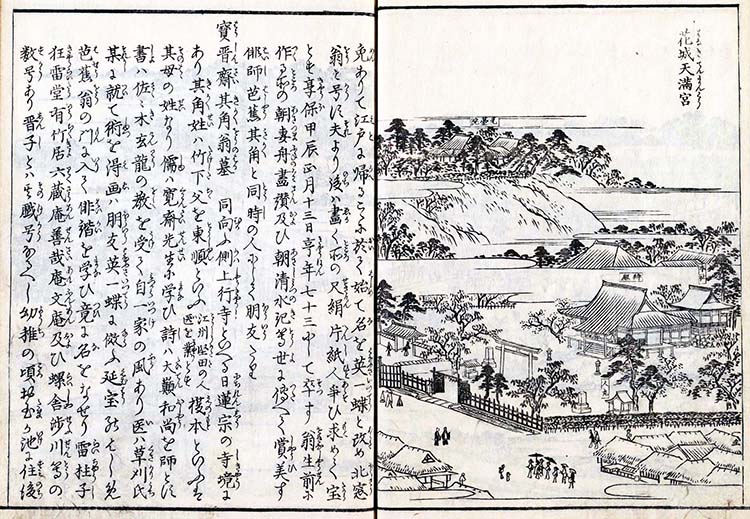 花城天満宮
光臺院
免ありて江戸に帰ることを得て始て名を英一蝶と改め北窓
翁と号す夫より後ハ畫所の尺絹片紙人争ひ求めて宝
とす享保甲辰正月十三日享年七十三にして卒す 翁生前に
作る所の朝妻舟畫讃及び朝清水記等世に傳へて賞美す
俳師芭蕉其角と同時の人にして朋友たり
寶晋齋其角翁墓 同向ふ側上行寺といへる日蓮宗の寺境に
あり其角姓ハ竹下父を東順といふ 江州堅田の人 医を業とす 榎本といふハ
其母の姓なり儒ハ寛齋先生に学び詩ハ大顛和尚を師とす
書ハ佐々木玄龍の教を受て自一家の風あり医ハ草刈氏
某に就て術を得画ハ朋友英一蝶に倣ふ延宝の始より
芭蕉翁の門に入て俳諧を学び竟に名をなせり雷柱子
狂雷堂有竹居六蔵庵善哉庵文庵及び螺舎渉川等の
数号あり晋子とハ其戯号なるべし幼稚の頃お玉が池に住後